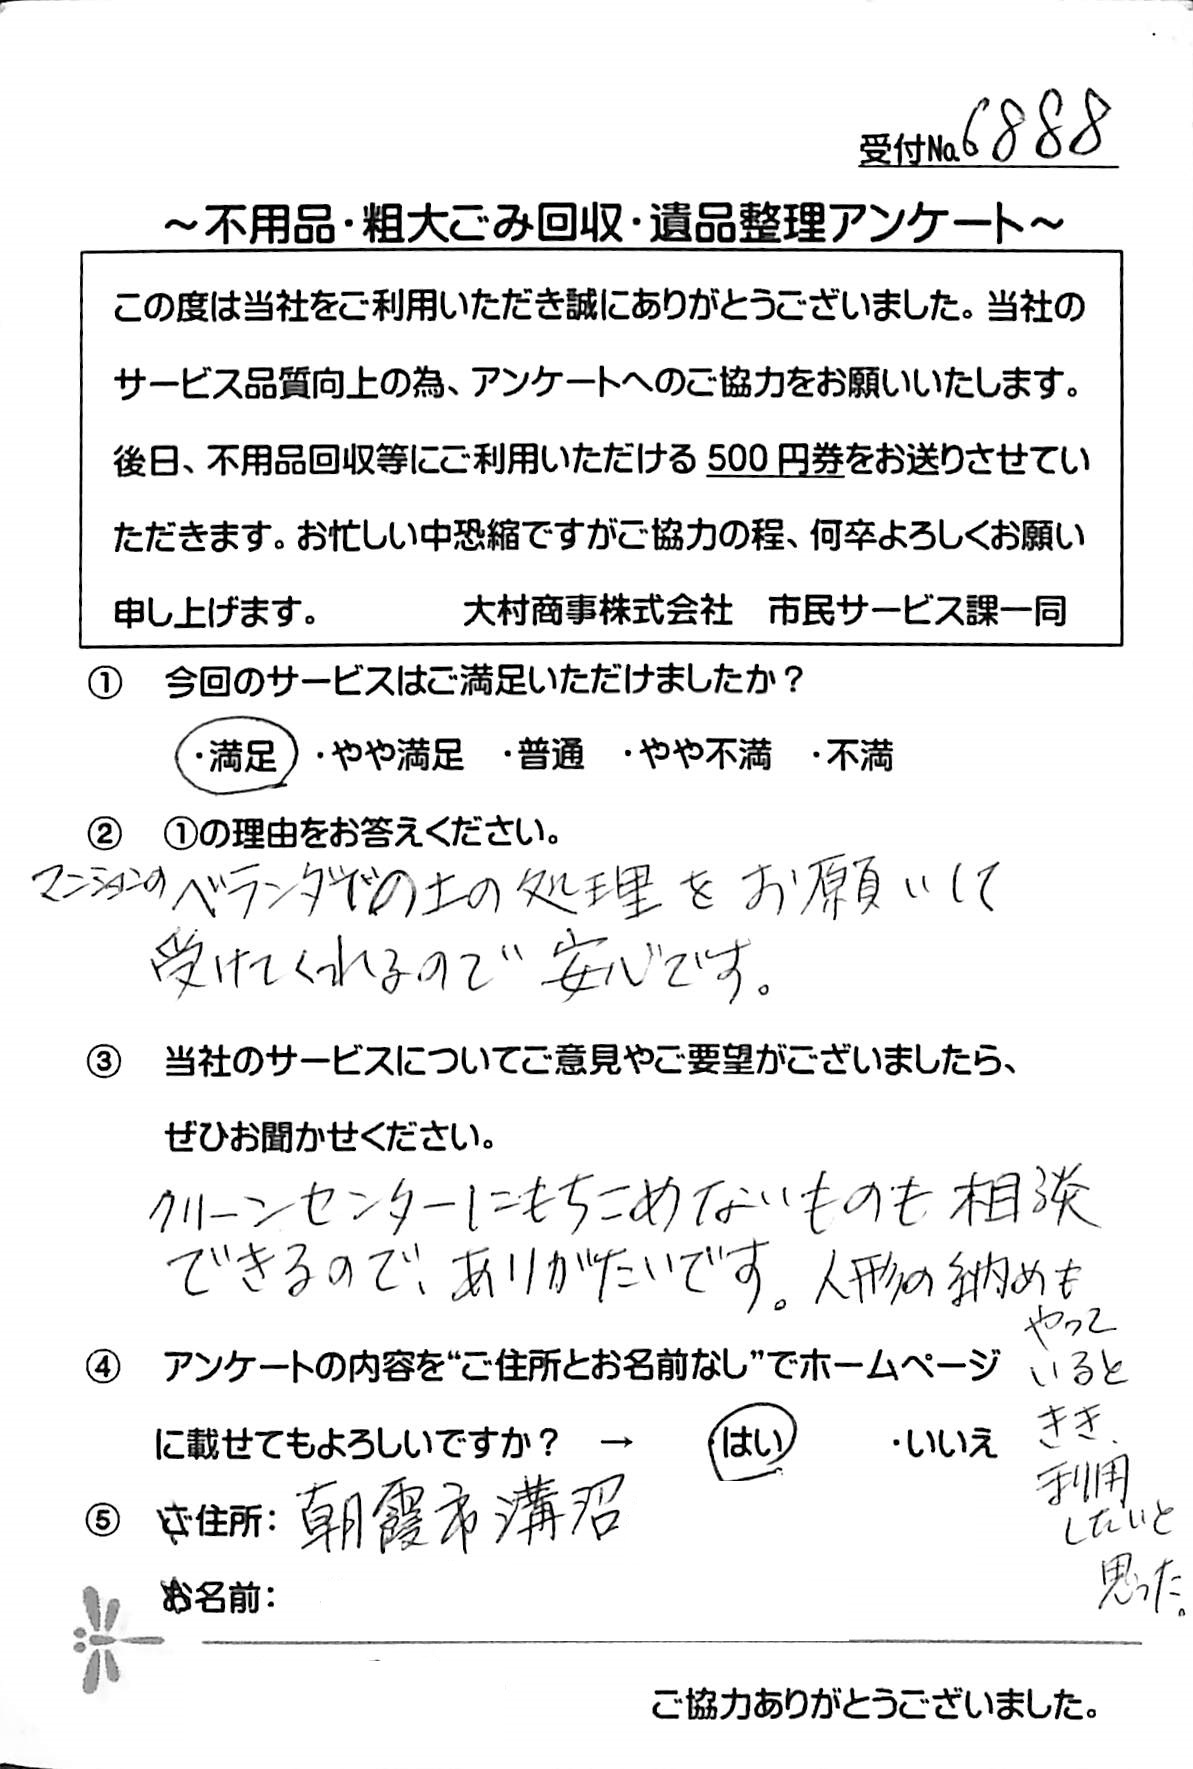 受付No.6888
～不用品・粗大ごみ回収・遺品整理アンケート～
この度は当社をご利用いただき誠にありがとうございました。当社の
サービス品質向上の為、アンケートへのご協力をお願いいたします。
後日、不用品回収等にご利用いただける500円券をお送りさせてい
ただきます。お忙しい中恐縮ですがご協力の程、何卒よろしくお願い
申し上げます。 大村商事株式会社 市民サービス課一同
① 今回のサービスはご満足いただけましたか？
・満足 ・やや満足 ・普通 ・やや不満 ・不満
② ①の理由をお答えください。
マンションのベランダでの土の処理をお願いして
受けてくれるので安心です。
③ 当社のサービスについてご意見やご要望がございましたら、
ぜひお聞かせください。
クリーンセンターにもちこめないものも相談
できるので、ありがたいです。人形の納めも
やって
いると
きき、
利用
したいと
思った。
④ アンケートの内容を“ご住所とお名前なし”でホームページ
に載せてもよろしいですか？ → ・はい ・いいえ
⑤ ご住所：朝霞市溝沼
お名前：
ご協力ありがとうございました。